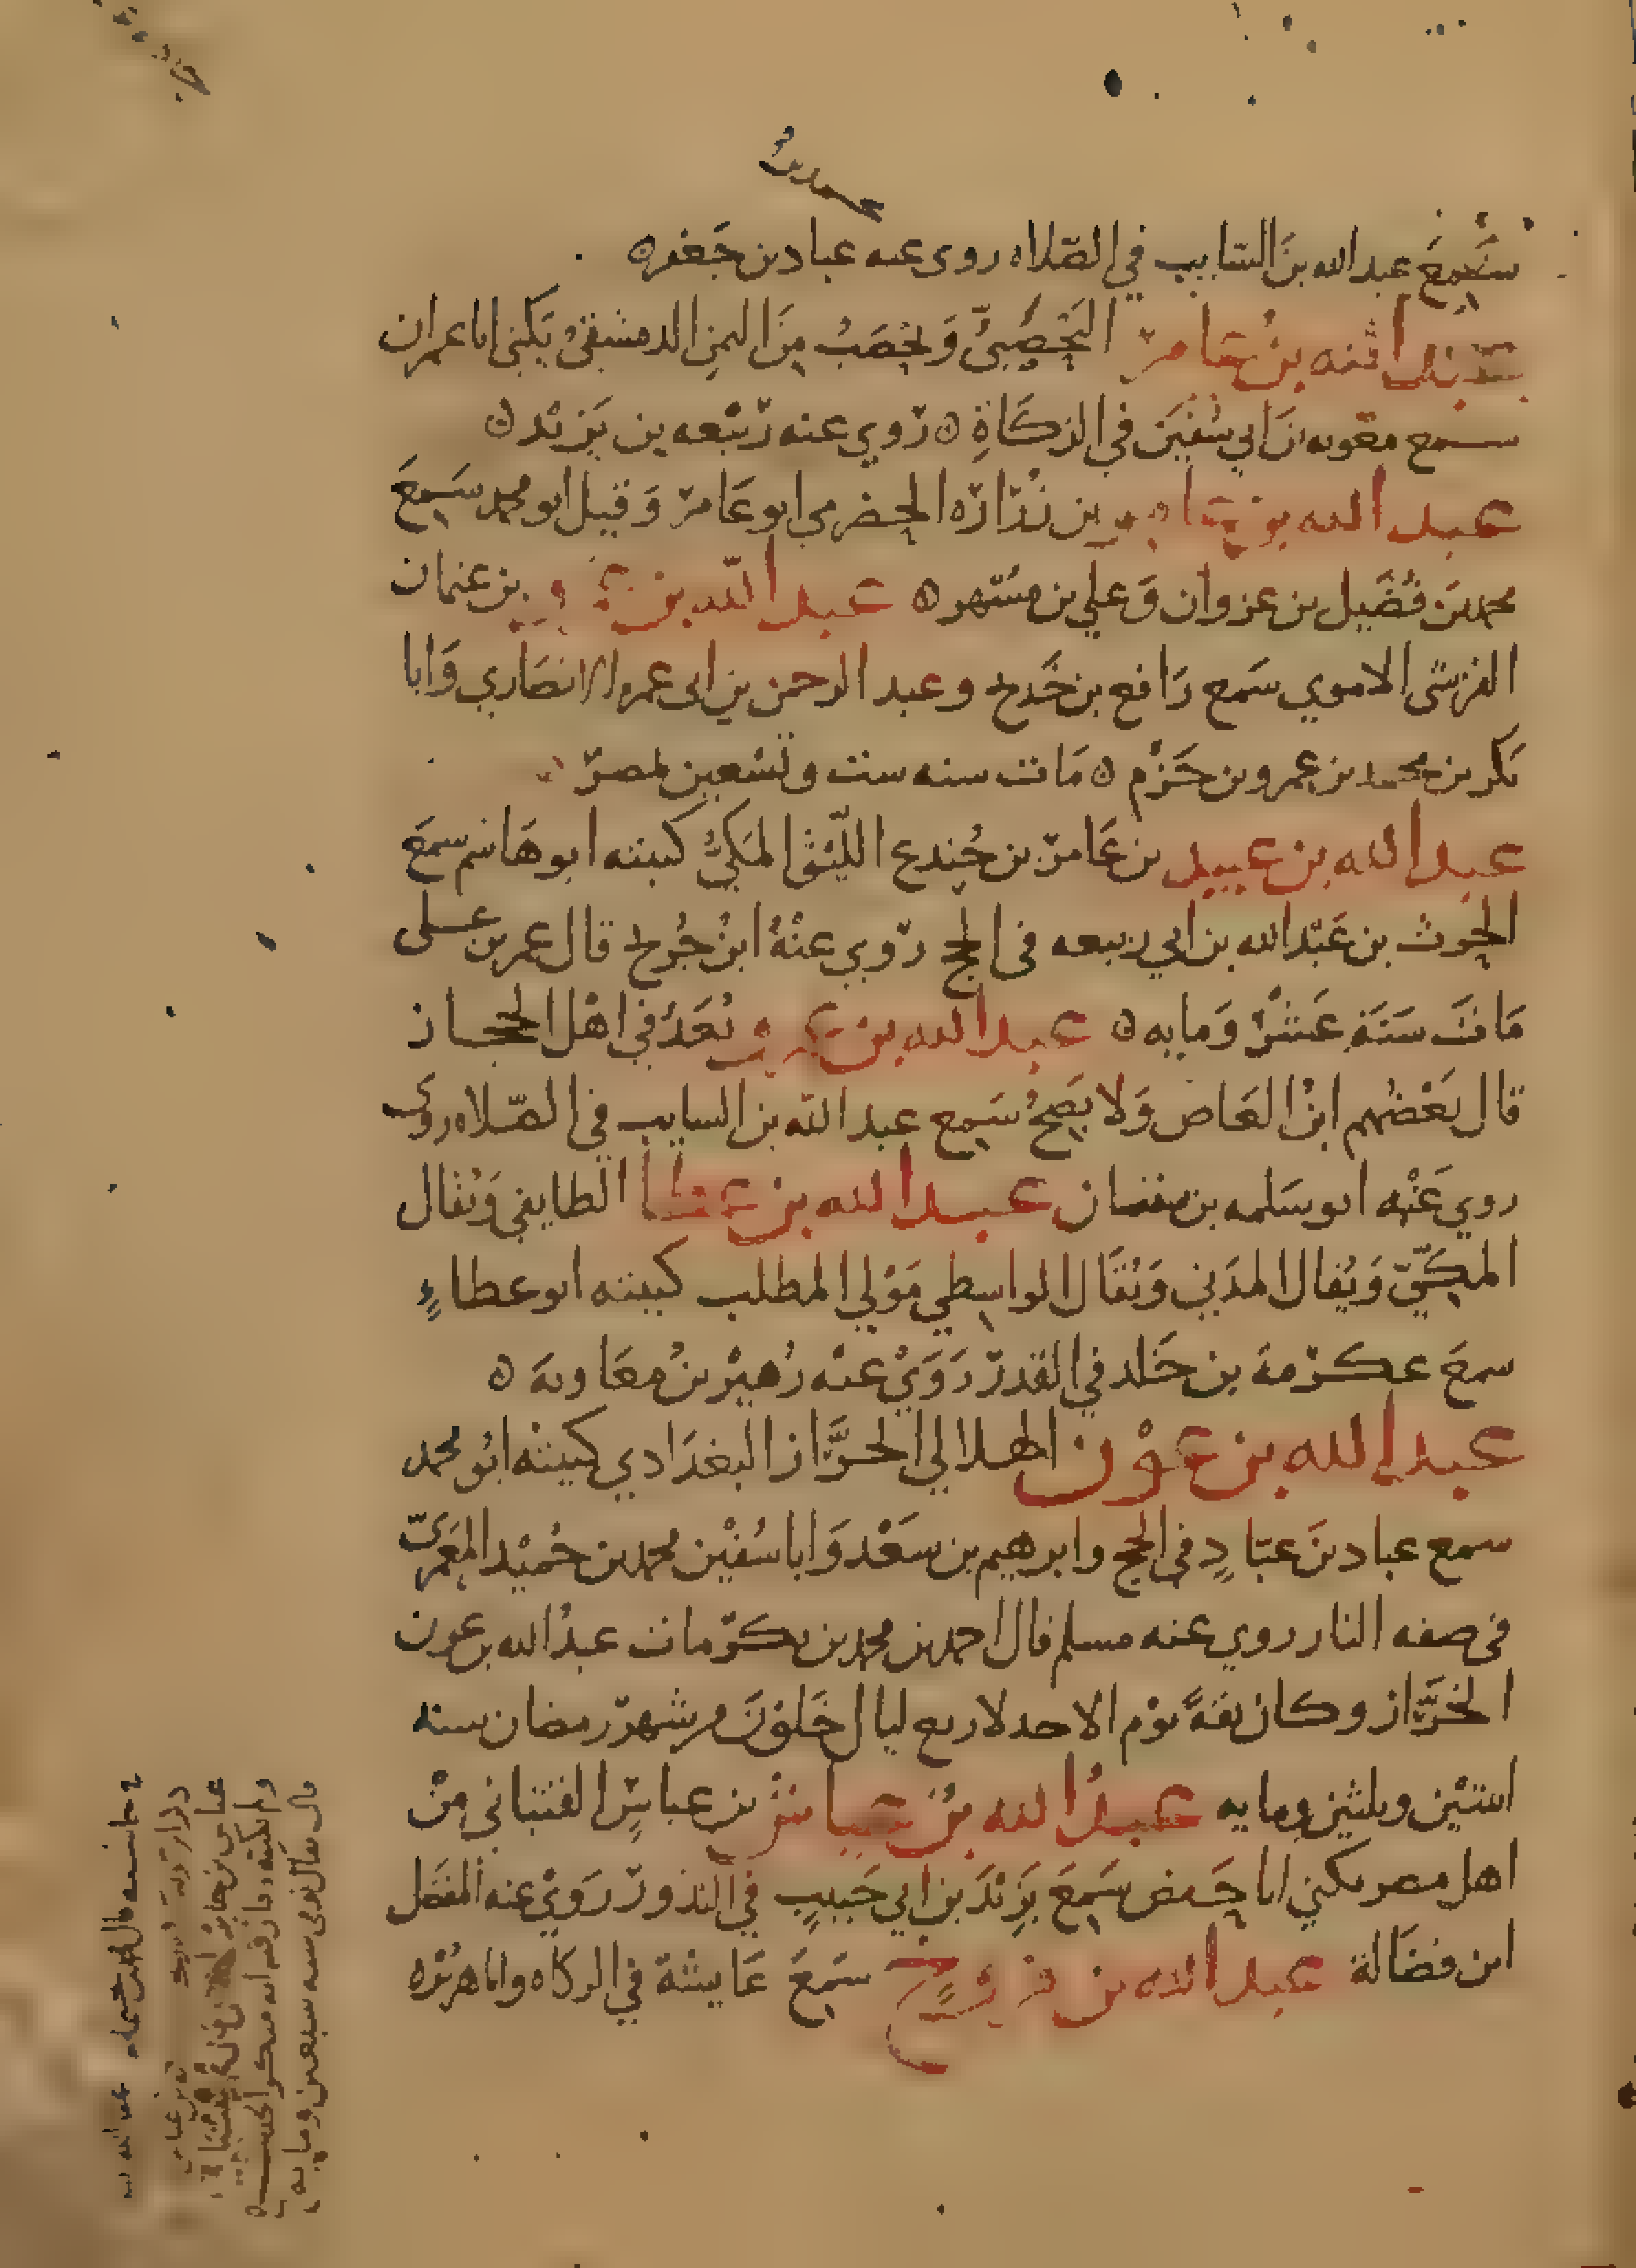 سمع عبد الله بن السايب في الصلاه روى عنه عباد بن جعفر ه
عبد الله بن عامر اليحصبي ويحصب من اليمن الدمشقي يكنى ابا عمران
سمع معويه بن ابي سفين في الزكاة ه روي عنه ربيعه بن يزيد ه
عبد الله بن عامر بن زرارة الحضرمي ابو عامر وقيل ابو محمد سمع
محمد بن فضيل بن غزوان وعلي بن مسهر ه عبد الله بن عمرو بن عثمان
القرشى الاموي سمع رافع بن خديج وعبد الرحمن بن ابى عمره الانصاري وابا
بكر بن محمد بن عمرو بن حزم ه مات سنه ست وتسعين بمصر
عبد الله بن عبيد بن عامر بن جندع الليثي المكي كنيته ابو هاشم سمع
الحرث بن عبد الله بن ابي ربيعه فى الحج روي عنه ابن جريج قال عمر بن على
مات سنة عشر ومايه ه عبد الله بن عمرو يعد في اهل الحجاز
قال بعضهم ابن العاص ولا يصح سمع عبد الله بن السايب في الصلاه روى
روي عنه ابو سلمه بن سفيان عبد الله بن عطا الطايفي ويقال
المكي ويقال المدني ويقال الواسطي مولي المطلب كنيته ابو عطاء
سمع عكرمة بن خالد في القدر روي عنه زهير بن معاوية ه
عبد الله بن عون الهلالي الخراز البغدادي كنيته ابو محمد
سمع عباد بن عباد في الحج وابرهيم بن سعد وابا سفين محمد بن حميد المعمري
فى صفه النار روي عنه مسلم قال احمد بن محمد بن بكر مات عبد الله بن عون
الخراز وكان ثقة يوم الاحد لاربع ليال خلون من شهر رمضان سنه
اثنتين وثلثين ومايه عبد الله بن عياش بن عباس القتباني من
اهل مصر يكني ابا حفص سمع يزيد بن ابي حبيب في النذور روي عنه المفضل
ابن فضالة عبد الله بن فروخ سمع عايشة في الزكاه وابا هريره